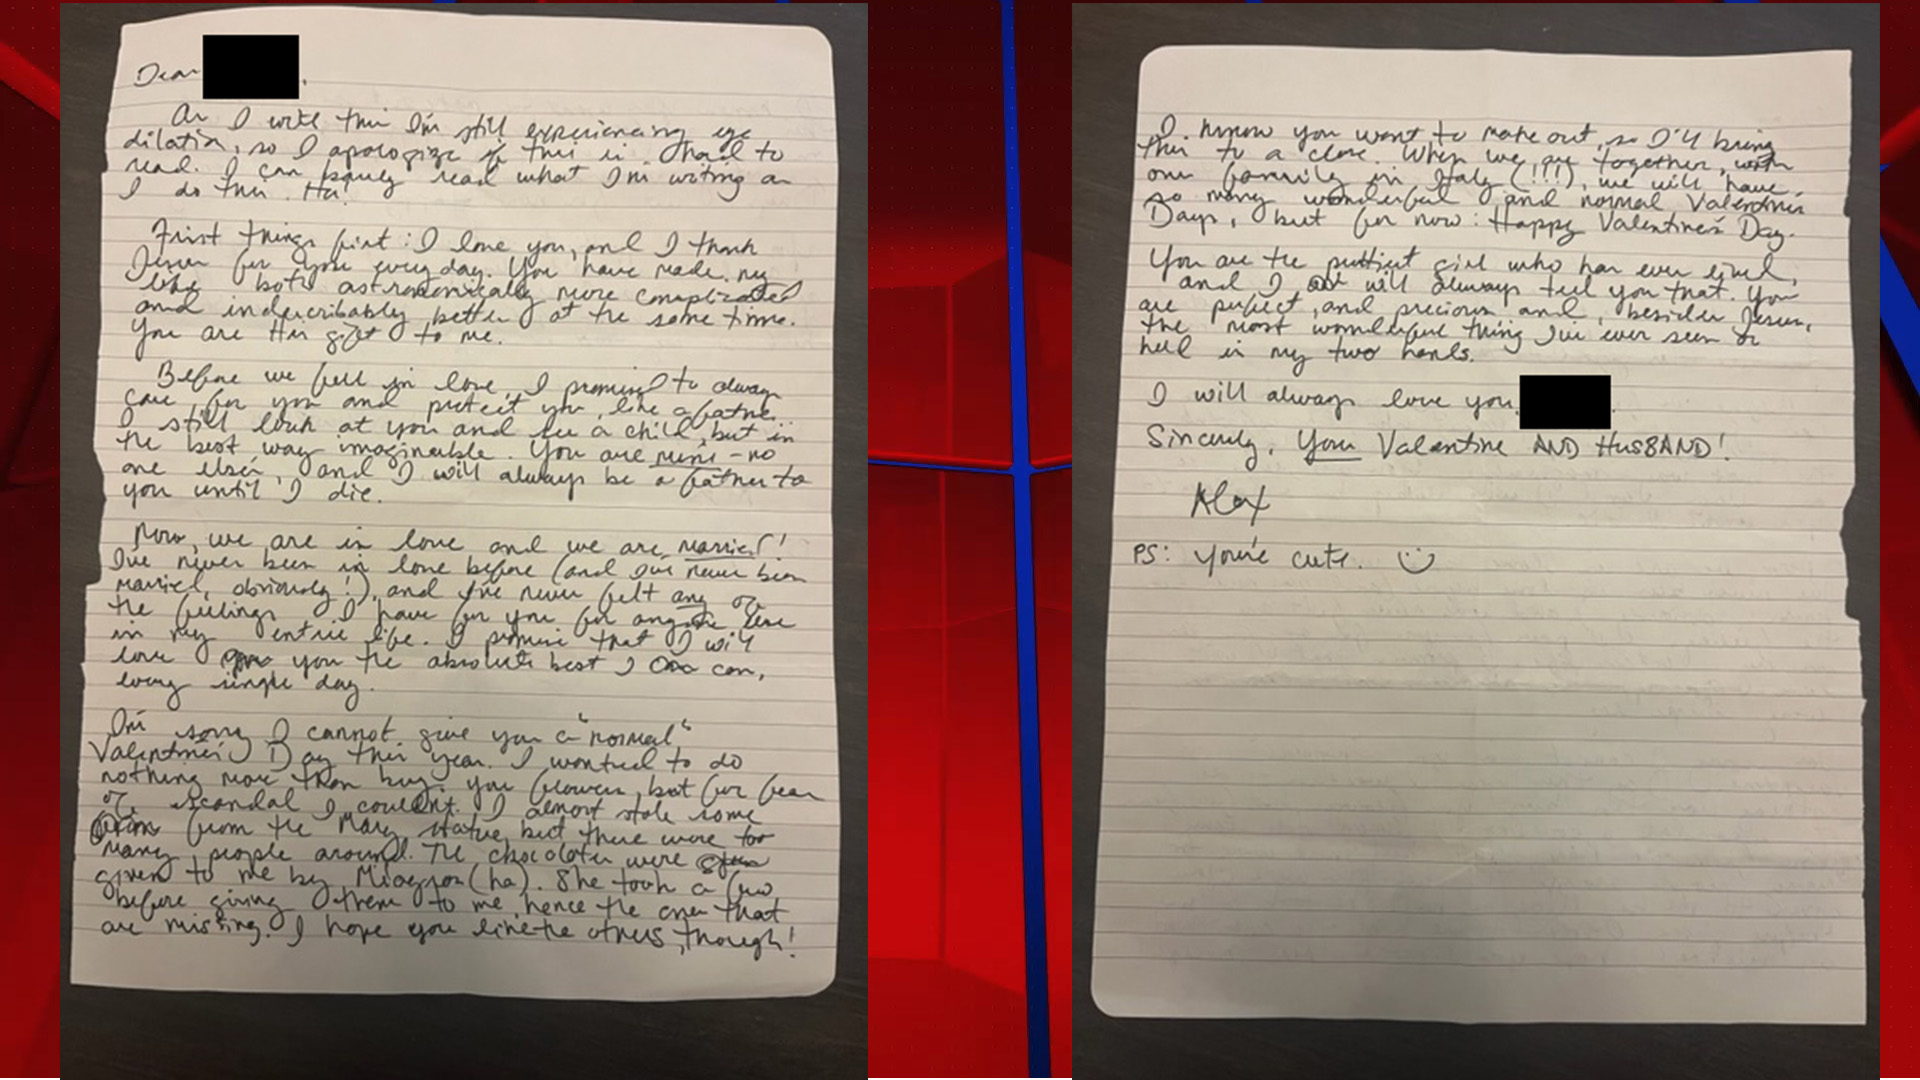 Dear
As I write this I'm still experiencing eye
dilation, so I apologize if this is hard to
read. I can barely read what I'm writing as
I do this. Ha!
First things first: I love you, and I thank
Jesus for you every day. You have made my
life both astronomically more complicated
and indescribably better at the same time.
You are His gift to me.
Before we fell in love, I promised to always
care for you and protect you, like a father.
I still look at you and see a child, but in
the best way imaginable. You are mine - no
one else's, and I will always be a father to
you until I die.
Now, we are in love and we are married!
I've never been in love before (and I've never been
married, obviously!), and I've never felt any of
the feelings I have for you for anyone else
in my entire life. I promise that I will
love you the absolute best I can,
every single day.
I'm sorry I cannot give you a "normal"
Valentine's Day this year. I wanted to do
nothing more than buy you flowers, but for fear
of scandal I couldn't. I almost stole some
from the Mary statue, but there were too
many people around. The chocolates were
given to me by (ha). She took a few
before giving them to me, hence the ones that
are missing. I hope you like the others, though!
I know you want to make out, so I'll bring
this to a close. When we are together, with
our family in Italy (!!!), we will have
so many wonderful and normal Valentines
Days, but for now: Happy Valentine's Day.
You are the prettiest girl who has ever lived,
and I will always tell you that. You
are perfect, and precious and, besides Jesus,
the most wonderful thing I've ever seen or
held in my two hands.
I will always love you,
Sincerely, Your Valentine AND HUSBAND!
Alex
PS: You're cute. :)